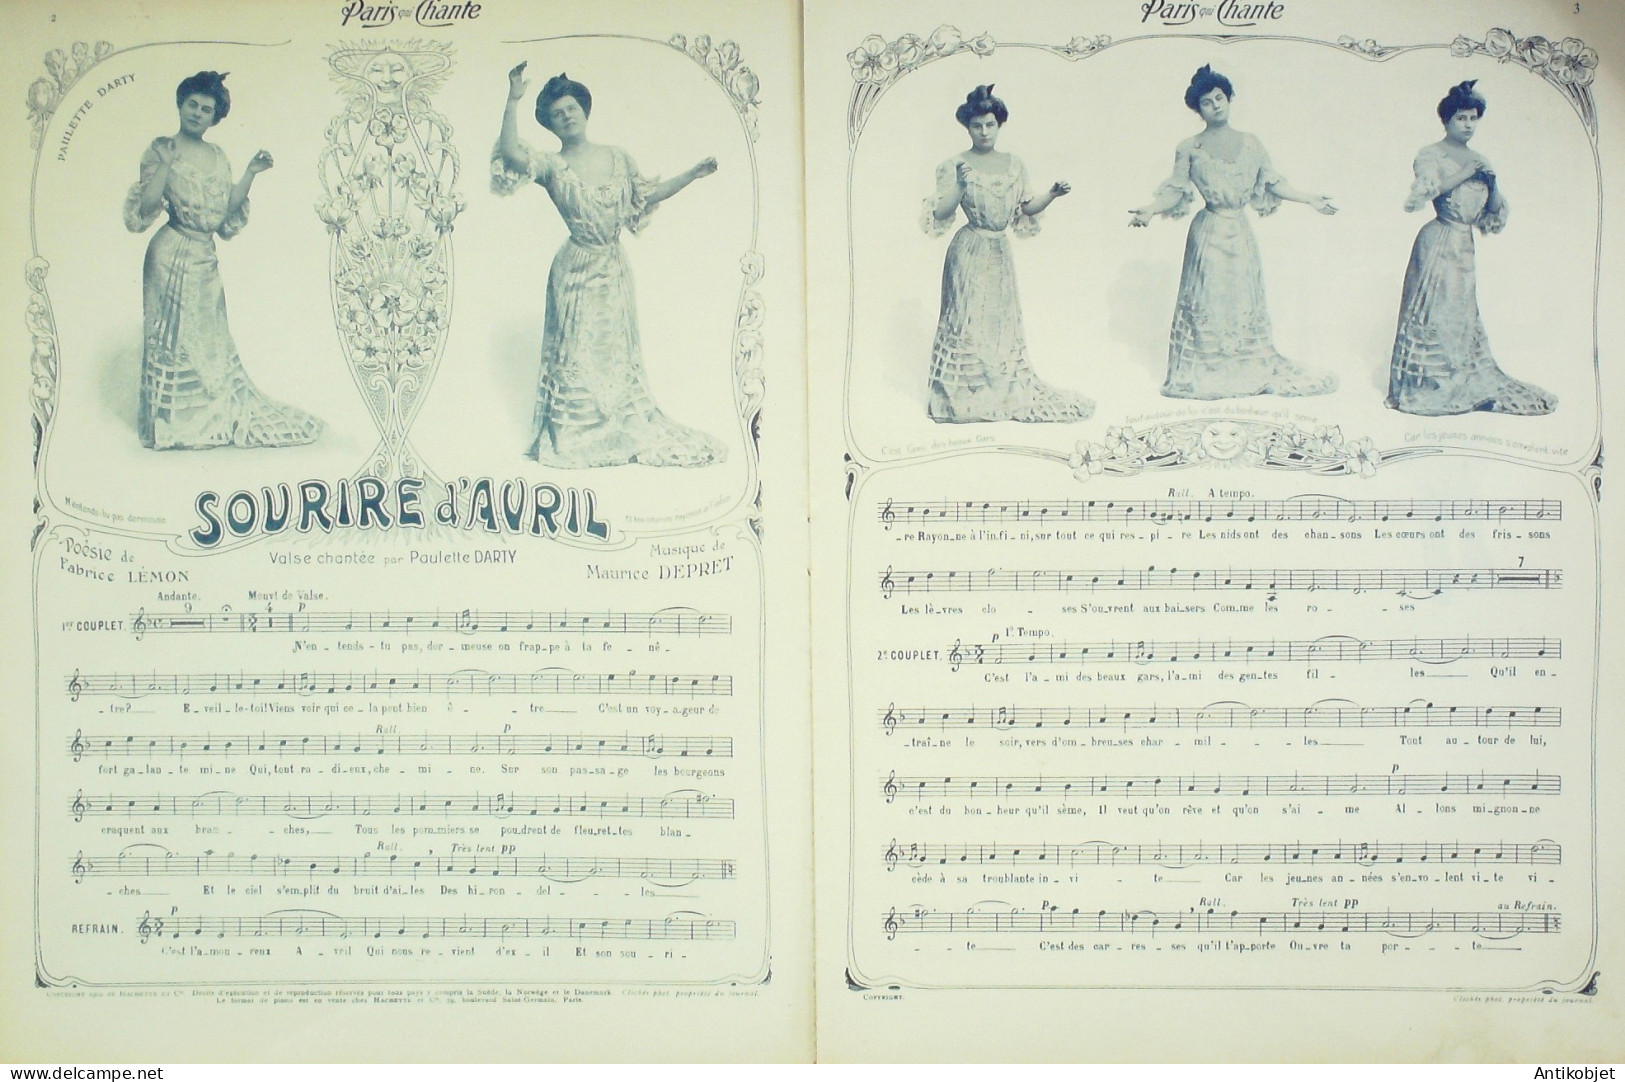 2
Paris qui Chante
PAULETTE DARTY
N'entends-tu pas dormeuse
SOURIRE d'AVRIL
Poésie de
Fabrice LÉMON
Valse chantée par Paulette DARTY
Musique de
Maurice DEPRET
Andante.
Mouvt de Valse.
9
4
p
1er COUPLET.
N'en - tends - tu pas, dor - meuse on frap-pe à ta fe - nê -
- tre? E - veil - le-toi! Viens voir qui ce - la peut bien ê - tre C'est un voy - a-geur de
Rall.
p
fort ga-lan - te mi - ne Qui, tout ra - di-eux, che - mi - ne. Sur son pas-sa - ge les bourgeons
craquent aux bran - ches, Tous les pom-miers se pou-drent de fleu-ret-tes blan -
Rall.
Très lent pp
- ches Et le ciel s'em-plit du bruit d'ai-les Des hi-ron - del - les
p
REFRAIN.
C'est l'a-mou - reux A - vril Qui nous re - vient d'ex - il Et son sou - ri -
COPYRIGHT BY HACHETTE ET Cie. Droits d'exécution et de reproduction réservés pour tous pays y compris la Suède, la Norwège et le Danemark. Clichés phot. propriété du journal.
Le format de piano est en vente chez HACHETTE et Cie, 79, boulevard Saint-Germain, Paris.
Paris qui Chante
3
C'est l'ami des beaux Gars
Tout autour de lui c'est du bonheur qu'il sème
Car les jeunes années s'envolent vite
Rall.
A tempo.
- re Rayon-ne à l'in.fi - ni, sur tout ce qui res - pi - re Les nids ont des chan - sons Les cœurs ont des fris - sons
7
Les lè-vres clo - ses S'ou-vrent aux bai-sers Com-me les ro - ses
p 1o Tempo.
2e COUPLET.
C'est l'a - mi des beaux gars, l'a-mi des gen-tes fil - les Qu'il en -
- traî-ne le soir, vers d'om - breu-ses char - mil - les Tout au - tour de lui,
p
c'est du bon - heur qu'il sème, Il veut qu'on rêve et qu'on s'ai - me Al - lons mi-gnon-ne
cède à sa troublante in - vi - te Car les jeu-nes an - nées s'en-vo-lent vi-te vi -
p
Rall.
Très lent pp
au Refrain.
- te C'est des car - res - ses qu'il t'ap-porte Ou-vre ta por - te
COPYRIGHT.
Clichés phot. propriété du journal.
Antikobjet
www.delcampe.net
Antikobjet